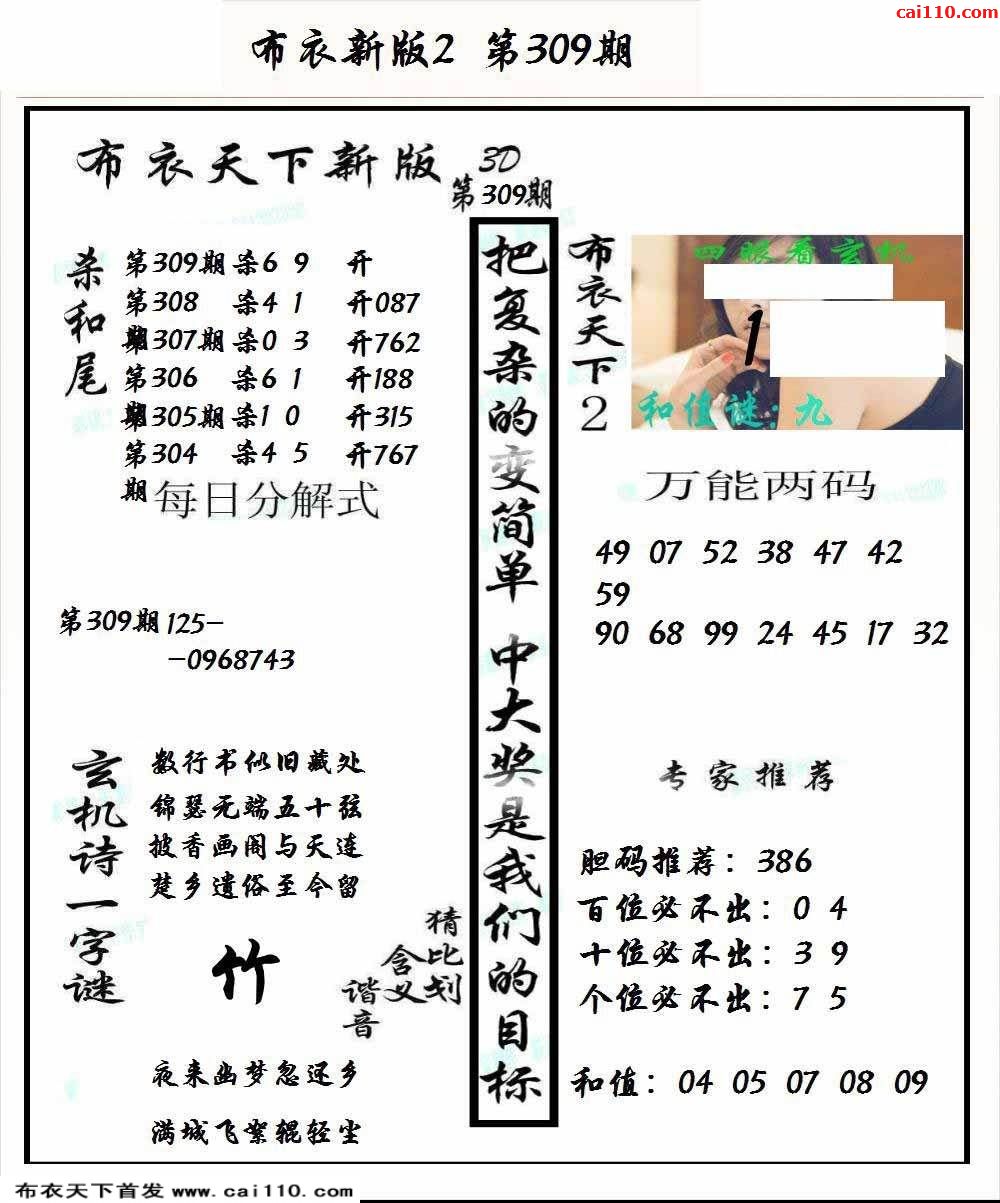 cai110.com
布衣新版2 第309期
布衣天下新版
3D
第309期
杀和尾
第309期 杀6 9 开
第308期 杀4 1 开087
第307期 杀0 3 开762
第306期 杀6 1 开188
第305期 杀1 0 开315
第304期 杀4 5 开767
每日分解式
第309期 125-
-0968743
玄机诗一字谜
数行书似旧藏处
锦瑟无端五十弦
披香画阁与天连
楚乡遗俗至今留
竹
猜比划
含义
谐音
夜来幽梦忽还乡
满城飞絮辊轻尘
把复杂的变简单 中大奖是我们的目标
布衣天下2
四眼看玄机
1
和值谜:九
万能两码
49 07 52 38 47 42
59
90 68 99 24 45 17 32
专家推荐
胆码推荐：386
百位必不出：0 4
十位必不出：3 9
个位必不出：7 5
和值：04 05 07 08 09
布衣天下首发 www.cai110.com